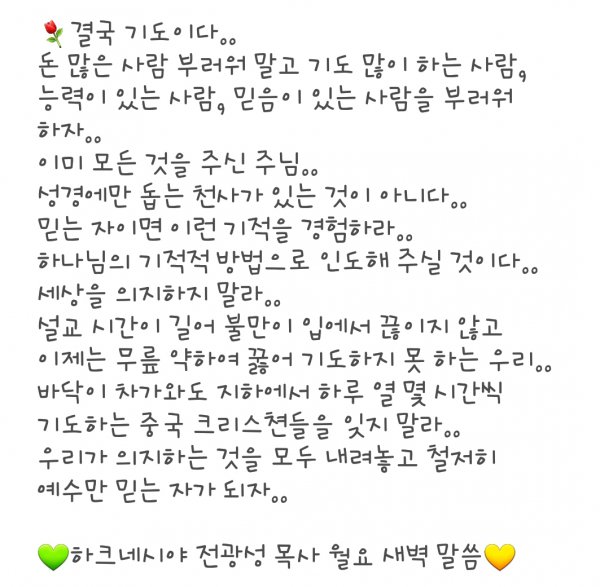 🌹결국 기도이다..
돈 많은 사람 부러워 말고 기도 많이 하는 사람,
능력이 있는 사람, 믿음이 있는 사람을 부러워
하자..
이미 모든 것을 주신 주님..
성경에만 돕는 천사가 있는 것이 아니다..
믿는 자이면 이런 기적을 경험하라..
하나님의 기적적 방법으로 인도해 주실 것이다..
세상을 의지하지 말라..
설교 시간이 길어 불만이 입에서 끊이지 않고
이제는 무릎 약하여 꿇어 기도하지 못 하는 우리..
바닥이 차가와도 지하에서 하루 열 몇 시간씩
기도하는 중국 크리스쳔들을 잊지 말라..
우리가 의지하는 것을 모두 내려놓고 철저히
예수만 믿는 자가 되자..
💚하크네시야 전광성 목사 월요 새벽 말씀💛